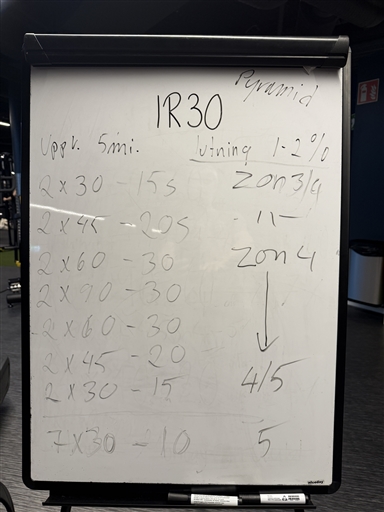 Pyramid
IR30
Uppv. 5min. lutning 1-2%
2 x 30 - 15s Zon 3/4
2 x 45 - 20s -11-
2 x 60 - 30 Zon 4
2 x 90 - 30
2 x 60 - 30
2 x 45 - 20
2 x 30 - 15 4/5
7 x 30 - 10 5